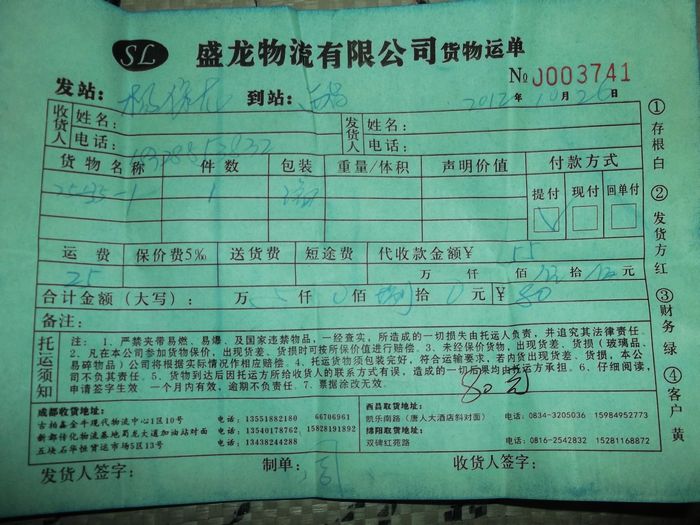 SL 盛龙物流有限公司货物运单
№ 0003741
发站: 到站: 2012年10月26日
收货人 姓名: 发货人 姓名:
电话: 电话:
货物名称 件数 包装 重量/体积 声明价值 付款方式
提付 现付 回单付
1
运费 保价费5‰ 送货费 短途费 代收款金额¥ 55
25 万 仟 佰 拾 元
合计金额(大写): 万 仟 佰 拾 元 ¥ 80
备注:
托运须知
注: 1、严禁夹带易燃、易爆、及国家违禁物品,一经查实,所造成的一切损失由托运人负责,并追究其法律责任。
2、凡在本公司参加货物保价,出现货差、货损时可按所保价值进行赔偿。3、未经保价货物,出现货差、货损(玻璃品、
易碎物品)公司将根据实际情况作相应赔偿。4、托运货物须包装完好,符合运输要求,若内货出现货差、货损,本公
司不负其责任。5、货物到达后因托运方所给收货人的联系方式有误,造成的一切后果均由托运方承担。6、仔细阅读,
申请签字生效。一个月内有效,逾期不负责任。7、票据涂改无效。
80元
成都收货地址:
古柏鑫金牛现代物流中心1区10号 电话:13551882180 66706961
新都传化物流基地蜀龙大道加油站对面 电话:13540178762 15828191892
五块石华恒货运市场5区13号 电话:13438244288
西昌取货地址:
凯乐南路(唐人大酒店斜对面) 电话:0834-3205036 15984952773
绵阳取货地址:
双碑红苑路 电话:0816-2542832 15281168872
发货人签字: 制单: 周 收货人签字:
①存根白
②发货方红
③财务绿
④客户黄